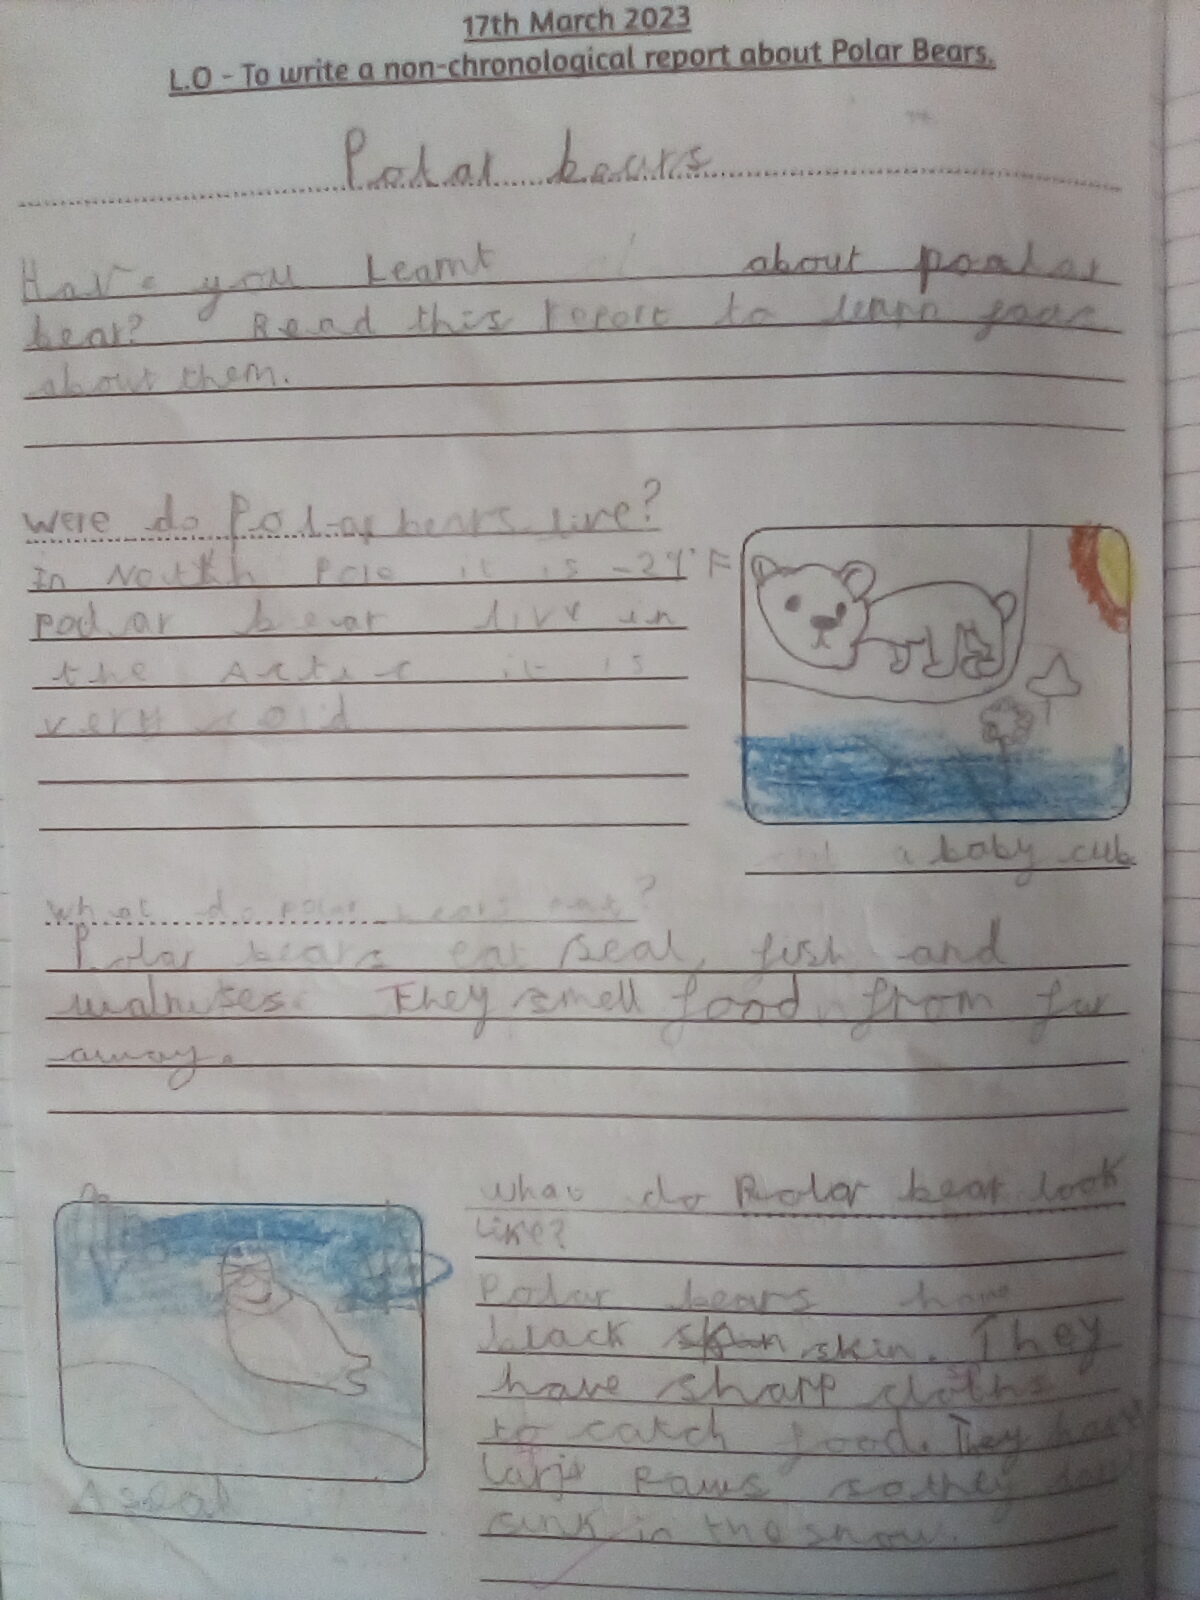 17th March 2023
L.O - To write a non-chronological report about Polar Bears.
Polar bears
Have you learnt about poalar
bear? Read this report to learn
about them.
Were do Polar bears live?
In North Pole it is -29°F
polar bear live in
the Artic it is
very cold
a baby cub
What do polar bears eat?
Polar bears eat seal, fish and
walruses. They smell food from far
away.
What do Polar bear look
like?
Polar bears have
black skin. They
have sharp cloths
to catch food. They have
larje Paws so they
sink in the snow.
A seal